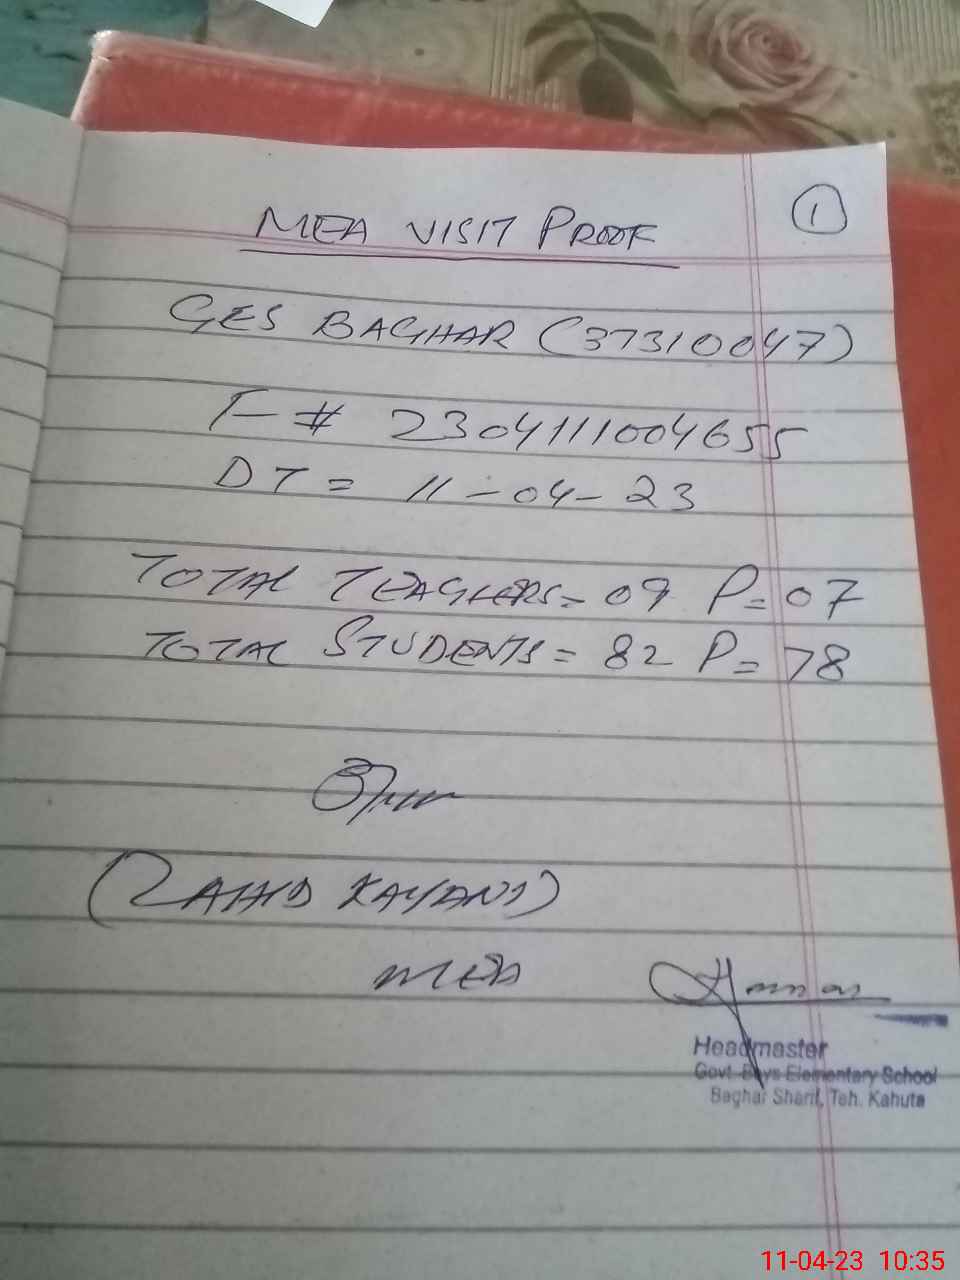 MEA VISIT PROOF
1
GES BAGHAR (37310047)
T- # 2304111004655
DT = 11-04-23
TOTAL TEACHERS= 09 P=07
TOTAL STUDENTS= 82 P=78
(ZAHID KAYANI)
MEA
Headmaster
Govt. Boys Elementary School
Baghar Sharif, Teh. Kahuta
11-04-23 10:35